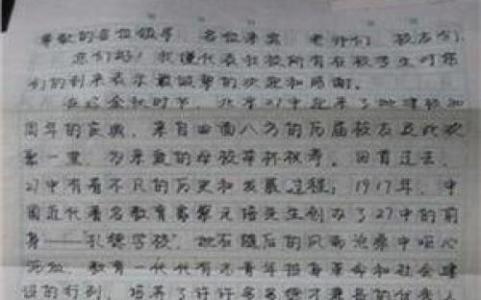 尊敬的各位领导、各位来宾、老师们、校友们:
您们好!我谨代表我校所有在校学生对您
们的到来表示最诚挚的欢迎和感谢。
在这金秋时节,北京27中迎来了她建校90
周年的庆典,来自四面八方的历届校友在此欢
聚一堂,为亲爱的母校举杯祝寿。回首过去,
27中有着不凡的历史和发展过程;1917年,中
国近代著名教育家蔡元培先生创办了27中的前
身——"孔德学校",她在随后的风雨沧桑中呕心
沥血,教育一代代有志青年投身革命和社会建
设的行列,培养了许许多多德才兼备的优秀人